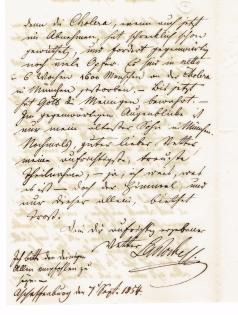 denn die Cholera, wenn auch jetzt
im Abnehmen, hat schrecklich schon
gewüthet, und fordert gegenwärtig
noch viele Opfer. Es sind in
6 Wochen 1600 Menschen an der Cholera
in München gestorben. – Bis jetzt
hat Gott d. Meinigen bewahrt. –
Im gegenwärtigen Augenblicke ist
nur mein ältester Sohn in München.
Nochmals, guter lieber Vetter
meine aufrichtigste, treueste
Theilnahme, – ja, ich weiß, was
es ist – doch der Himmel, und
nur dieser allein, biethet
Trost.
Ihr aufrichtig ergebener
Vetter
Ich bitte den
Allen empfohlen zu
Aschaffenburg den 7 Sept. 1854.